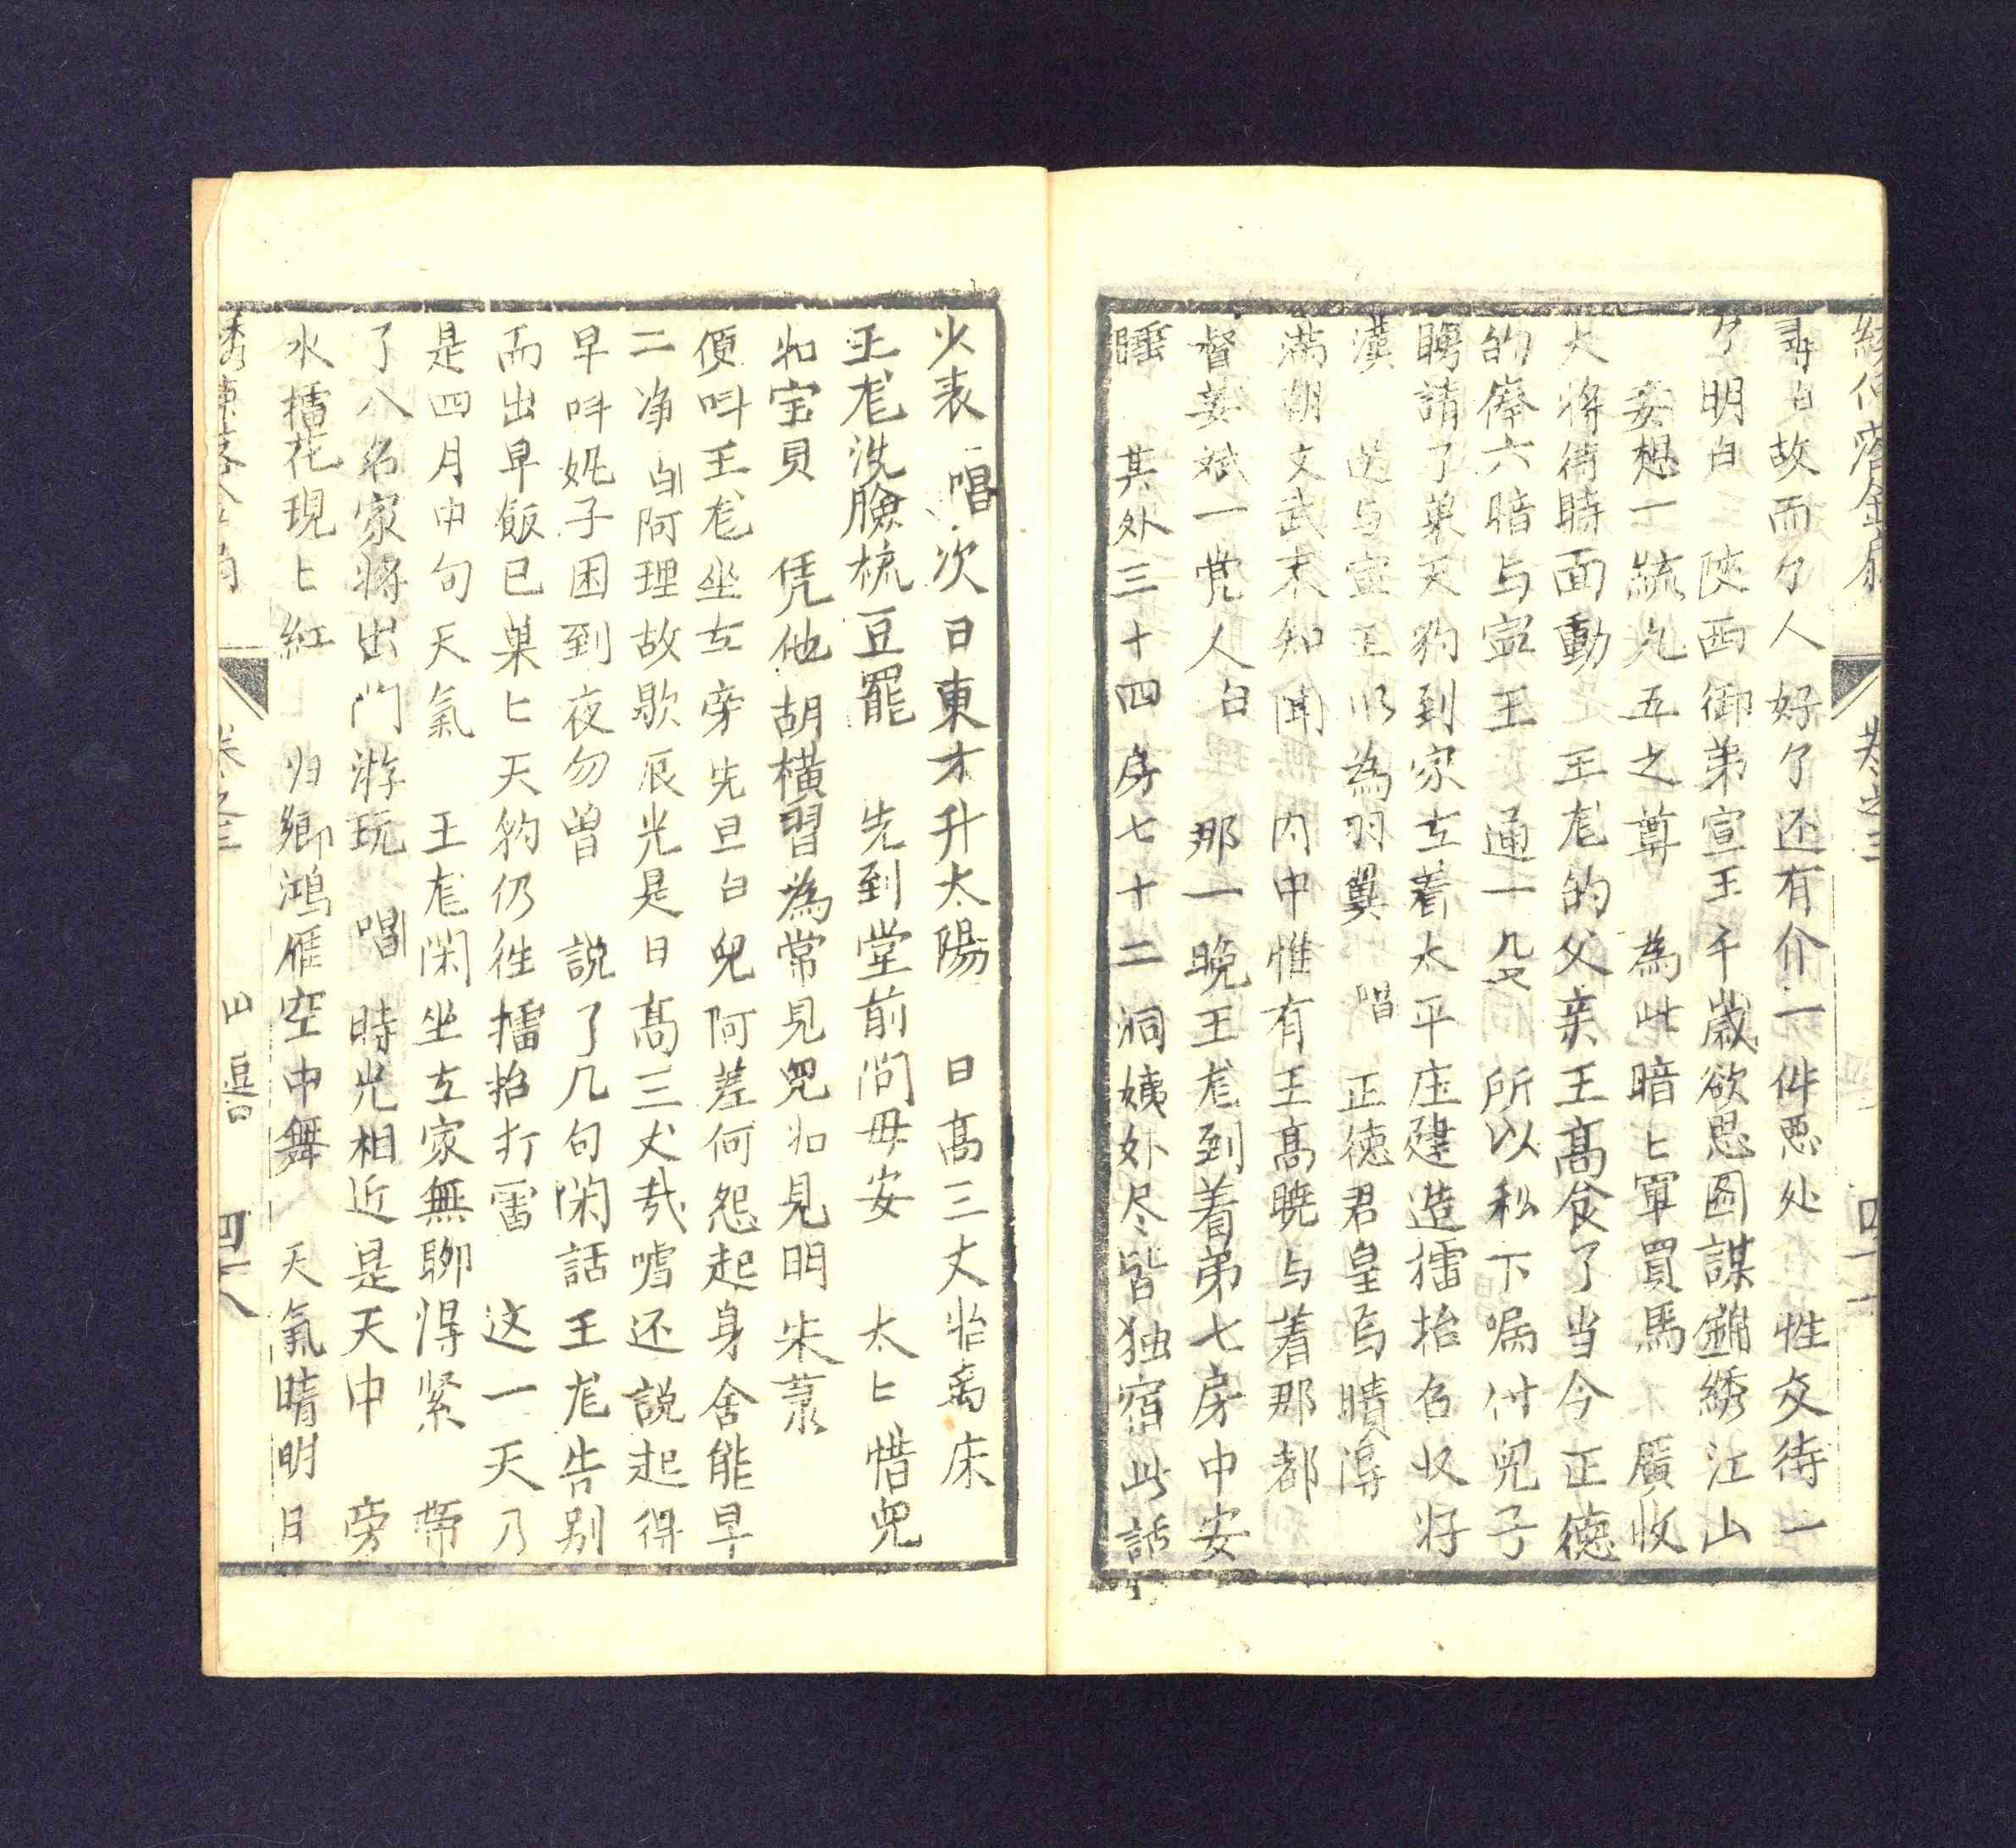 尋白故而勺人好勺还有介一件悪处 性交待一
勺明白 陕西御弟宣王千歲欲思图謀錦綉江山
妄想一統九五之尊 為此暗匕軍買馬 廣收
大將待時面動 王尨的父亲王髙食了当今正德
的俸六暗与寧王 通一殳 所以私下嘱付兒子
聘請了巢天豹到家㐀着太平庄建造擂抬色收好
漢 送与宣王以為羽翼 唱 正德君皇烏瞔淂
滿朝文武未知聞内中惟有王髙曉与着那都
督姜斌一党人 白 那一晚王尨到着弟七房中安
睡 其外三十四房七十二洞姨外尽皆独宿此話不
火表 唱 次日東才升太陽 日髙三丈始离床
王尨洗臉梳豆罷 先到堂前问母安 太匕惜兒
如宝貝 凭他胡横習為常見兒如見明朱蒙
便呌王尨坐㐀旁先旦白兒阿差何怨起身舍能早
二净 白 阿理故歇辰光是日髙三丈哉噲还説起得
早呌姚子困到夜勿曾 説了几句闲話王尨告别
而出早飯已巢匕天豹仍徃擂抬打雷 这一天乃
是四月中旬天氣 王尨闲坐㐀家無聊淂紧 带
了八名家將出门游玩 唱 時光相近是天中 旁
水榴花現匕紅 归鄉鴻雁空中舞 天氣晴明日
卷之三
四十八